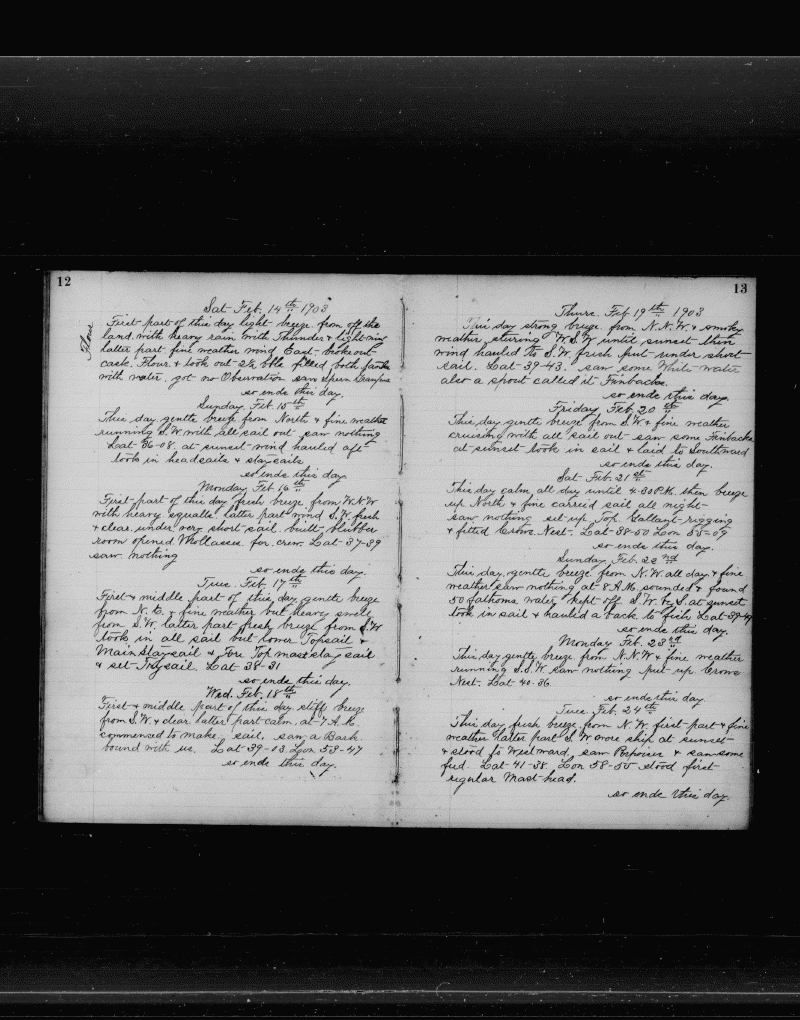 12
Sat Feb. 14th 1903
Flour
First part of this day light breeze from off the
land with heavy rain with Thunder & lightning
latter part fine weather wind East broke out
cask Flour & took out 2½ bbls filled both tanks
with water. got no Observation saw Sperm Grampus
so ends this day.
Sunday Feb. 15th
This day gentle breeze from North & fine weather
running S.W. with all sail out saw nothing
Lat 36-08. at sunset wind hauled aft
took in headsails & staysails
so ends this day
Monday Feb. 16th
First part of this day fresh breeze from W.N.W
with heavy squalls latter part wind S.W. fresh
& clear under very short sail. built blubber
room opened Mollasses for crew. Lat 37-39
saw nothing
so ends this day.
Tues. Feb. 17th
First & middle part of this day gentle breeze
from N.E. & fine weather but heavy swell
from S.W. latter part fresh breeze from S.W
took in all sail but lower Topsail &
Main Staysail & Fore Top mast stay sail
& set Trysail. Lat 38-31
so ends this day.
Wed. Feb. 18th
First & middle part of this day stiff breeze
from S.W. & clear latter part calm. at 7 A.M.
commenced to make sail, saw a Bark
bound with us. Lat 39-03 Lon 53-47
so ends this day.
13
Thurs. Feb 19th 1903
This day strong breeze from N.N.W. & smoky
weather stearing W.S.W until sunset then
wind hauled to S.W. fresh put under short
sail. Lat 39-43. saw some White water
also a spout called it Finbacks.
so ends this day.
Friday Feb. 20th
This day gentle breeze from S.W. & fine weather
cruising with all sail out saw some Finbacks
at sunset took in sail & laid to Southward
so ends this day.
Sat Feb. 21st
This day calm all day until 4-30 P.M. then breeze
up North & fine carried sail all night
saw nothing set up Top Gallant rigging
& fitted Crows Nest. Lat 38-50 Lon 55-09
so ends this day.
Sunday Feb. 22nd
This day gentle breeze from N.W. all day & fine
weather saw nothing at 8 A.M. sounded & found
50 fathoms water kept off S.W. by S. at sunset
took in sail & hauled a back to fish Lat 39-49
so ends this day
Monday Feb. 23rd
This day gentle breeze from N.N.W & fine weather
running S.S.W. saw nothing put up Crows
Nest. Lat 40-36.
so ends this day.
Tues. Feb. 24th
This day fresh breeze from N.W. first part & fine
weather latter part S.W wore ship at sunset
& stood to Westward saw Porpoises & saw some
fed. Lat 41-38. Lon 58-55 stood first
regular Mast-head.
so ends this day.